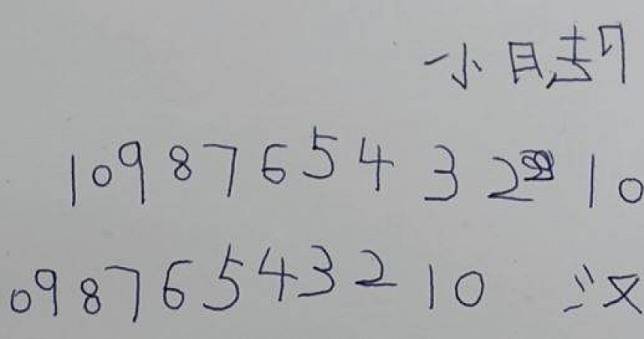 小日
10 9 8 7 6 5 4 3 2 1 0
0 9 8 7 6 5 4 3 2 1 0 汉